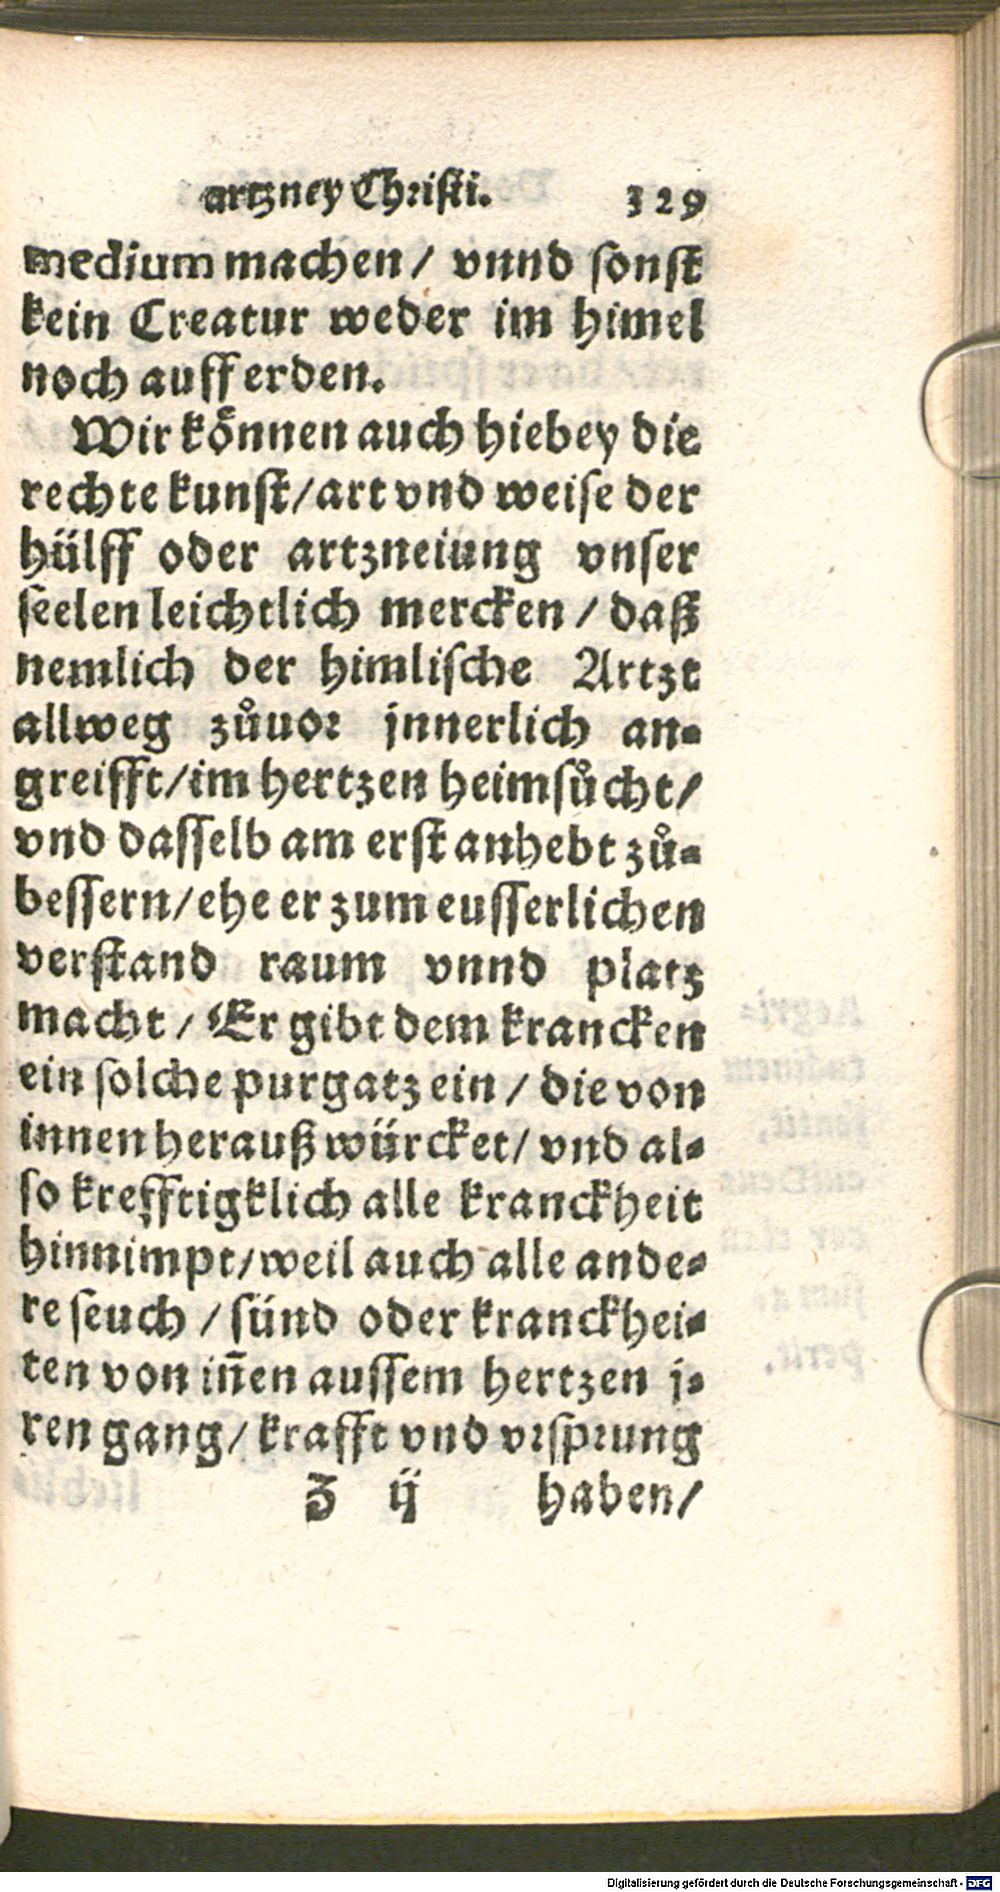 artzney Christi. 329
medium machen / vnnd sonst
kein Creatur weder im himel
noch auff erden.
Wir koͤnnen auch hiebey die
rechte kunst / art vnd weise der
hülff oder artzneiung vnser
seelen leichtlich mercken / daß
nemlich der himlische Artzt
allweg zůuor jnnerlich an-
greifft / im hertzen heimsůcht /
vnd dasselb am erst anhebt zů-
bessern / ehe er zum eusserlichen
verstand raum vnnd platz
macht / Er gibt dem krancken
ein solche purgatz ein / die von
innen herauß würcket / vnd al-
so krefftigklich alle kranckheit
hinnimpt / weil auch alle ande-
re seuch / sünd oder kranckhei-
ten von iñen aussem hertzen j-
ren gang / krafft vnd vrsprung
Z ij haben /
Digitalisierung gefördert durch die Deutsche Forschungsgemeinschaft - DFG